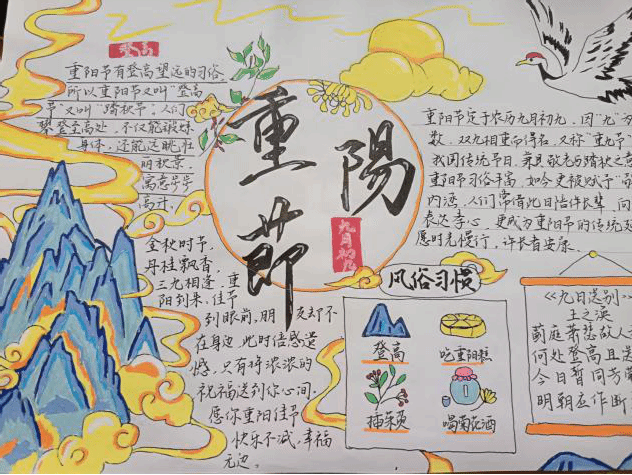 登高
重阳节有登高望远的习俗,
所以重阳节又叫"登高
节"又叫"踏秋节",人们
攀登至高处,不仅能锻炼
身体,还能远眺壮
丽秋景,
寓意步步
高升。
重陽節
九月初九
重阳节定于农历九月初九,因"九"为
数,双九相重而得名,又称"重九节"
我国传统节日,兼具敬老与踏秋之意
重阳节习俗丰富,如今更被赋予
内涵,人们常借此日陪伴长辈,问
表达孝心,更成为重阳节的传统
愿时光慢行,许长者安康
金秋时节,
丹桂飘香,
三九相逢,重
阳到来,佳节
到眼前,朋友却不
在身边,此时倍感遗
憾,只有将浓浓的
祝福送到你心间,
愿你重阳佳节
快乐不减,幸福
无边。
风俗习惯
登高
吃重阳糕
插茱萸
喝菊花酒
《九日送别》
王之涣
蓟庭萧瑟故人
何处登高且送
今日暂同芳菊
明朝应作断